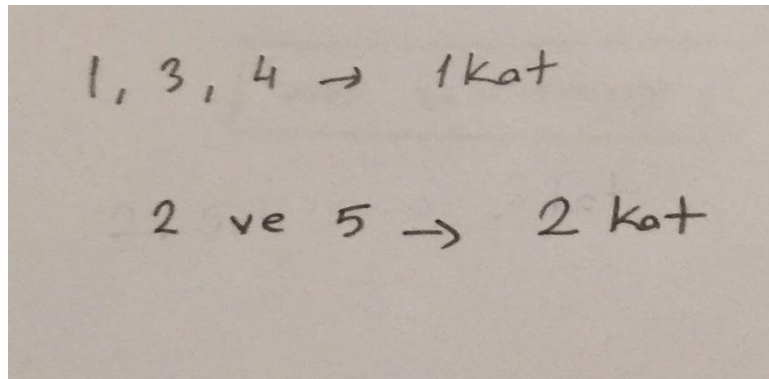 1, 3, 4 → 1 Kat
2 ve 5 → 2 Kat